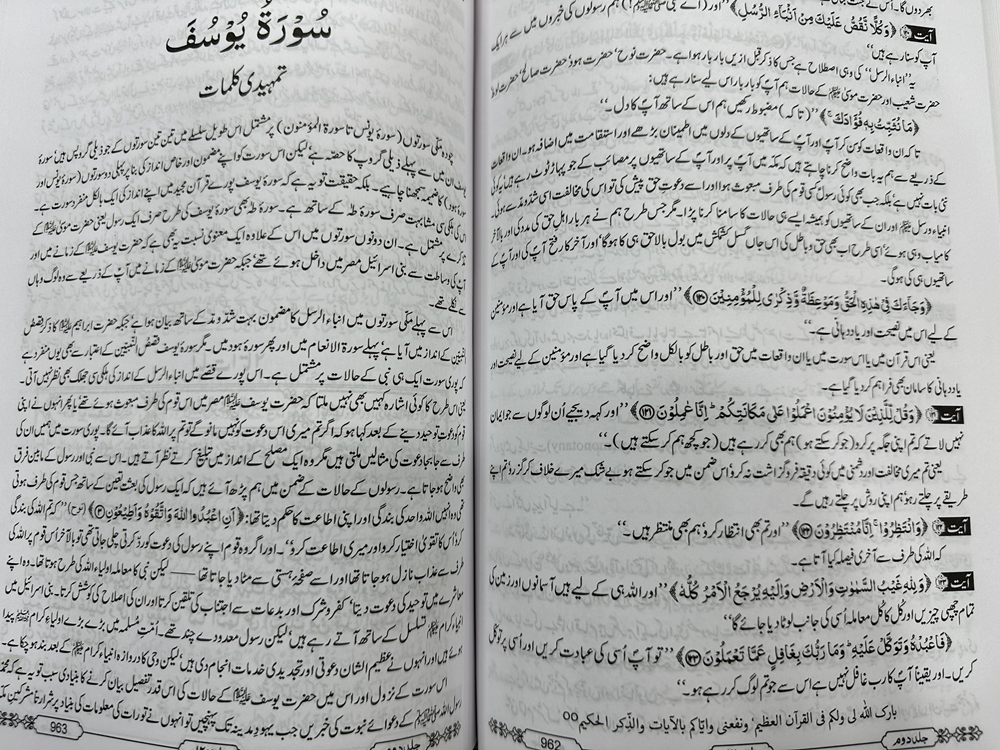 بھر دوں گا۔ اُس نے جنت
آیت ۱۲۰ ﴿وَكُلًّا نَّقُصُّ عَلَيْكَ مِنْ اَنْۢبَآءِ الرُّسُلِ﴾ ’’اور (اے نبی ﷺ!) ہم رسولوں کی خبروں میں سے ہر ایک
آپ کو سنا رہے ہیں‘‘
یہ ’’انباء الرسل‘‘ کی وہی اصطلاح ہے جس کا ذکر قبل ازیں بار بار ہوا ہے۔ حضرت نوح‘ حضرت ہود‘ حضرت صالح‘ حضرت لوط
حضرت شعیب اور حضرت موسیٰ کے حالات ہم آپؐ کو بار بار اس لیے سنا رہے ہیں:
﴿مَا نُثَبِّتُ بِهٖ فُؤَادَكَ ۚ﴾ ’’(تاکہ) مضبوط رکھیں ہم اس کے ساتھ آپؐ کا دل۔‘‘
تاکہ ان واقعات کو سن کر آپؐ اور آپؐ کے ساتھیوں کے دلوں میں اطمینان بڑھے اور استقامت میں اضافہ ہو۔ ان واقعات
کے ذریعے سے ہم یہ بات واضح کرنا چاہتے ہیں کہ مکہ میں آپؐ پر اور آپؐ کے ساتھیوں پر مصائب کے جو پہاڑ ٹوٹ رہے ہیں یہ کوئی
نئی بات نہیں ہے‘ بلکہ جب بھی کوئی رسولؑ کسی قوم کی طرف مبعوث ہوا اور اسے دعوتِ حق پیش کی تو اس کی مخالفت اسی شدومد سے ہوئی
انبیاء ورسل اور ان کے ساتھیوں کو ہمیشہ ایسے ہی حالات کا سامنا کرنا پڑا۔ مگر جس طرح ہم نے ہر بار اہلِ حق کی مدد کی اور بالآخر
کامیاب وہی ہوئے‘ اسی طرح اب بھی حق و باطل کی اس جاں گسل کشمکش میں بول بالا حق ہی کا ہوگا‘ اور آخر کار فتح آپؐ کی اور آپؐ کے
ساتھیوں ہی کی ہوگی۔
﴿وَجَآءَكَ فِيْ هٰذِهِ الْحَقُّ وَمَوْعِظَةٌ وَّذِكْرٰى لِلْمُؤْمِنِيْنَ ۝۱۲۰﴾ ’’اور اس میں آپؐ کے پاس حق آیا ہے اور مؤمنین
کے لیے اس میں نصیحت اور یاددہانی ہے۔‘‘
یعنی اس قرآن میں یا اس سورت میں یا ان واقعات میں حق اور باطل کو بالکل واضح کر دیا گیا ہے اور مؤمنین کے لیے نصیحت اور
یاددہانی کا سامان بھی فراہم کر دیا گیا ہے۔
آیت ۱۲۱ ﴿وَقُلْ لِّلَّذِيْنَ لَا يُؤْمِنُوْنَ اعْمَلُوْا عَلٰى مَكَانَتِكُمْ ۭ اِنَّا عٰمِلُوْنَ ۝۱۲۱﴾ ’’اور کہہ دیجیے اُن لوگوں سے جو ایمان
نہیں لاتے کہ تم اپنی جگہ پر کرو (جو کر سکتے ہو) ہم بھی کر رہے ہیں (جو کچھ ہم کر سکتے ہیں)۔‘‘
یعنی تم میری مخالفت اور دشمنی میں کوئی دقیقہ فروگزاشت نہ کرو‘ اس ضمن میں جو کر سکتے ہو بے شک میرے خلاف کر گزرو‘ تم اپنے
طریقے پر چلتے رہو‘ ہم اپنی روش پر چلتے رہیں گے۔
آیت ۱۲۲ ﴿وَانْتَظِرُوْا ۚ اِنَّا مُنْتَظِرُوْنَ ۝۱۲۲﴾ ’’اور تم بھی انتظار کرو‘ ہم بھی منتظر ہیں۔‘‘
کہ اللہ کی طرف سے آخری فیصلہ کیا آتا ہے۔
آیت ۱۲۳ ﴿وَلِلّٰهِ غَيْبُ السَّمٰوٰتِ وَالْاَرْضِ وَاِلَيْهِ يُرْجَعُ الْاَمْرُ كُلُّهٗ﴾ ’’اور اللہ ہی کے لیے ہیں آسمانوں اور زمین کی
تمام چھپی چیزیں اور کل کا کل معاملہ اُسی کی جانب لوٹا دیا جائے گا‘‘
﴿فَاعْبُدْهُ وَتَوَكَّلْ عَلَيْهِ ۭ وَمَا رَبُّكَ بِغَافِلٍ عَمَّا تَعْمَلُوْنَ ۝۱۲۳﴾ ’’تو آپؐ اُسی کی عبادت کریں اور اُسی پر توکّل
کریں۔ اور یقیناً آپؐ کا رب غافل نہیں ہے اس سے جو تم لوگ کر رہے ہو۔‘‘
بارك الله لى ولكم فى القرآن العظيم‘ ونفعنى واياكم بالآيات والذّكر الحكيم٥٥
جلد دوم
962
سُوْرَةُ يُوْسُفَ
تمہیدی کلمات
چودہ مکی سورتوں (سورۂ یونس تا سورۃ المؤمنون) پر مشتمل اس طویل سلسلے میں تین تین سورتوں کے جو ذیلی گروپس ہیں‘ سورۂ
یوسف ان میں سے پہلے ذیلی گروپ کا حصہ ہے‘ لیکن اس سورت کو اپنے مضمون اور خاص انداز کی بنا پر پہلی دو سورتوں (سورۂ یونس اور
سورۂ ہود) کا ضمیمہ سمجھنا چاہیے۔ بلکہ حقیقت تو یہ ہے کہ سورۂ یوسف پورے قرآن مجید میں اپنے انداز کی ایک بالکل منفرد سورت ہے۔
اس کی ہلکی سی مشابہت صرف سورۂ طٰہٰ کے ساتھ ہے۔ سورۂ طٰہٰ بھی سورۂ یوسف کی طرح صرف ایک رسول یعنی حضرت موسیٰ کے
تذکرے پر مشتمل ہے۔ ان دونوں سورتوں میں اس کے علاوہ ایک معنوی نسبت یہ بھی ہے کہ حضرت یوسف کے زمانے میں اور
آپؑ کی وساطت سے بنی اسرائیل مصر میں داخل ہوئے تھے‘ جبکہ حضرت موسیٰ کے زمانے میں آپؑ کے ذریعے سے وہ لوگ وہاں
سے نکلے تھے۔
اس سے پہلے مکی سورتوں میں انباء الرسل کا مضمون بہت شدّ و مد کے ساتھ بیان ہوا ہے‘ جبکہ حضرت ابراہیم کا ذکر قصص
النبیین کے انداز میں آیا ہے‘ پہلے سورۃ الانعام میں اور پھر سورۂ ہود میں۔ مگر سورۂ یوسف قصص النبیین کے اعتبار سے بھی یوں منفرد ہے
کہ پوری سورت ایک ہی نبی کے حالات پر مشتمل ہے۔ اس پورے قصے میں انباء الرسل کے انداز کی ہلکی سی جھلک بھی نظر نہیں آتی۔
یعنی اس طرح کا کوئی اشارہ کہیں بھی نہیں ملتا کہ حضرت یوسف مصر میں اس قوم کی طرف مبعوث ہوئے تھے یا پھر انہوں نے اپنی
قوم کو دعوتِ توحید دینے کے بعد کہا ہو کہ اگر تم میری اس دعوت کو نہیں مانو گے تو تم پر اللہ کا عذاب آئے گا۔ پوری سورت میں ہمیں ان کی
طرف سے جابجا دعوت کی مثالیں ملتی ہیں مگر وہ ایک مصلح کے انداز میں تبلیغ کرتے نظر آتے ہیں۔ اس سے نبی اور رسول کے مابین فرق
بھی واضح ہو جاتا ہے۔ رسولوں کے حالات کے ضمن میں ہم پڑھ آئے ہیں کہ ایک رسول کی بعثت تعین کے ساتھ جس قوم کی طرف ہوتی
تھی وہ انہیں اللہ واحد کی بندگی اور اپنی اطاعت کا حکم دیتا تھا: ﴿اَنِ اعْبُدُوا اللّٰهَ وَاتَّقُوْهُ وَاَطِيْعُوْنِ ۝۳﴾ (نوح) ’’کہ تم اللہ کی بندگی
کرو‘ اُس کا تقویٰ اختیار کرو اور میری اطاعت کرو‘‘۔ اور اگر وہ قوم اپنے رسول کی دعوت کو رد کرتی چلی جاتی تھی تو بالآخر اس قوم پر اللہ کی
طرف سے عذاب نازل ہو جاتا تھا اور اسے صفحۂ ہستی سے مٹا دیا جاتا تھا —— لیکن نبی کا معاملہ اولیاء اللہ کی طرح ہوتا تھا۔ وہ اپنے
معاشرے میں توحید کی دعوت دیتا‘ کفر و شرک اور بدعات سے اجتناب کی تلقین کرتا اور ان کی اصلاح کی کوشش کرتا۔ بنی اسرائیل میں
انبیاء کرام تسلسل کے ساتھ آتے رہے ہیں‘ لیکن رسول معدودے چند تھے۔ اُمتِ مُسلمہ میں بڑے بڑے اولیاء کرام پیدا
ہوئے ہیں اور انہوں نے عظیم الشان دعوتی اور تجدیدی خدمات انجام دی ہیں‘ لیکن وحی کا دروازہ انبیاء کرام کے بعد بند ہو چکا ہے۔
اس سورت کے نزول اور اس میں حضرت یوسف کے حالات کی اس قدر تفصیل بیان کرنے کا بنیادی سبب تو یہ ہے کہ محمدٌ
رسول اللہ ﷺ کے دعوائے نبوت کی خبریں جب یہودِ مدینہ تک پہنچیں تو انہوں نے تورات کی معلومات کی بنیاد پر شرارتاً مشرکینِ مکہ
963